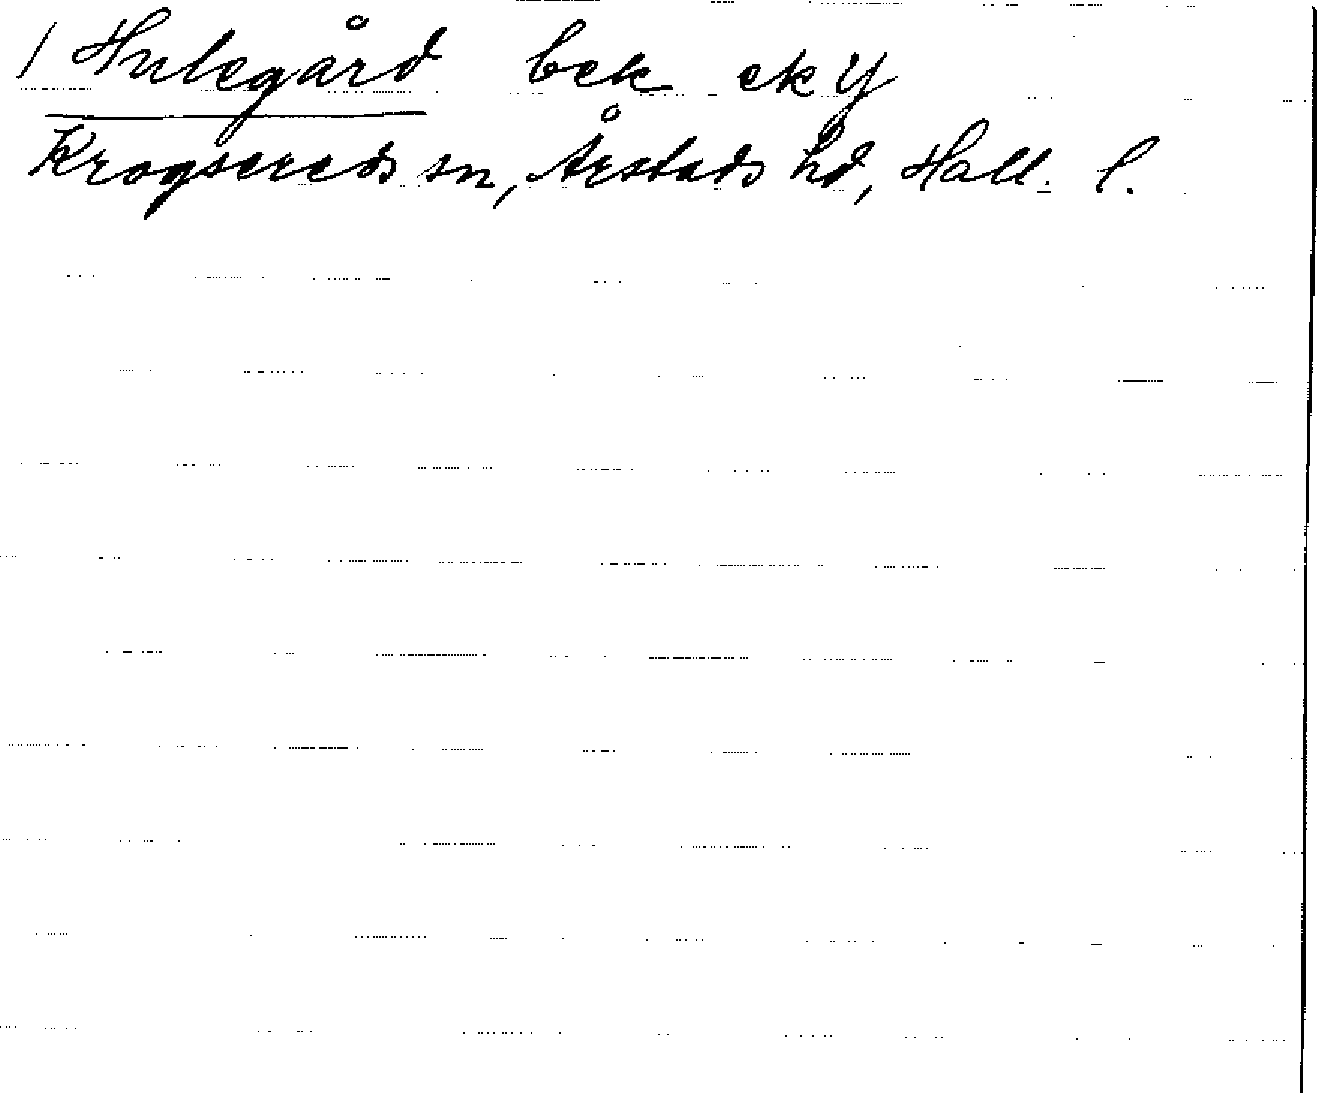 / Hulegård bek ek y
Krogsereds sn, Årstads hd, Hall. l.